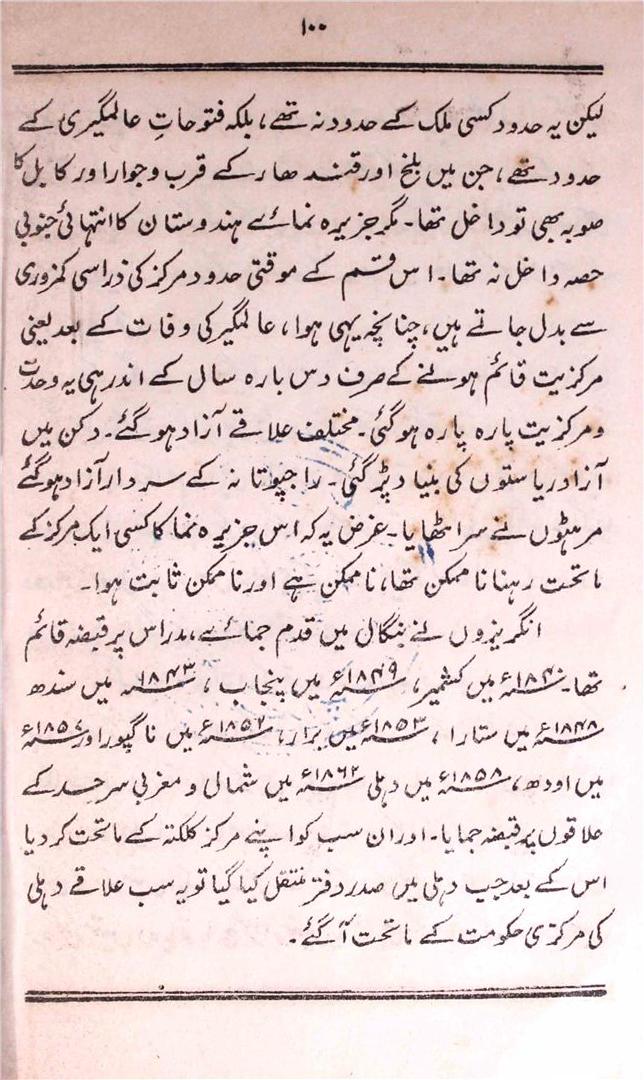 ۱۰۰
لیکن یہ حدود کسی ملک کے حدود نہ تھے، بلکہ فتوحاتِ عالمگیری کے
حدود تھے، جن میں بلخ اور قندھار کے قرب وجوار اور کابل کا
صوبہ بھی تو داخل تھا۔ مگر جزیرہ نمائے ہندوستان کا انتہائی جنوبی
حصہ داخل نہ تھا۔ اس قسم کے موقتی حدود مرکز کی ذراسی کمزوری
سے بدل جاتے ہیں، چنانچہ یہی ہوا، عالمگیر کی وفات کے بعد یعنی
مرکزیت قائم ہونے کے صرف دس بارہ سال کے اندر ہی یہ وحدت
ومرکزیت پارہ پارہ ہوگئی۔ مختلف علاقے آزاد ہوگئے۔ دکن میں
آزاد ریاستوں کی بنیاد پڑ گئی۔ راجپوتانہ کے سردار آزاد ہوگئے
مرہٹوں نے سر اٹھایا۔ غرض یہ کہ اس جزیرہ نما کا کسی ایک مرکز کے
ماتحت رہنا ناممکن تھا، ناممکن ہے اور ناممکن ثابت ہوا۔
انگریزوں نے بنگال میں قدم جمائے، مدراس پر قبضہ قائم
تھا۔ ۱۸۴۰ء میں کشمیر، ۱۸۴۹ء میں پنجاب، ۱۸۴۳ء میں سندھ
۱۸۴۸ء میں ستارا، ۱۸۵۳ء میں برار، ۱۸۵۷ء میں ناگپور اور ۱۸۵۷ء
میں اودھ، ۱۸۵۸ء میں دہلی ۱۸۶۲ء میں شمال و مغربی سرحد کے
علاقوں پر قبضہ جمایا۔ اور ان سب کو اپنے مرکز کلکتہ کے ماتحت کر دیا
اس کے بعد جب دہلی میں صدر دفتر منتقل کیا گیا تو یہ سب علاقے دہلی
کی مرکزی حکومت کے ماتحت آگئے۔